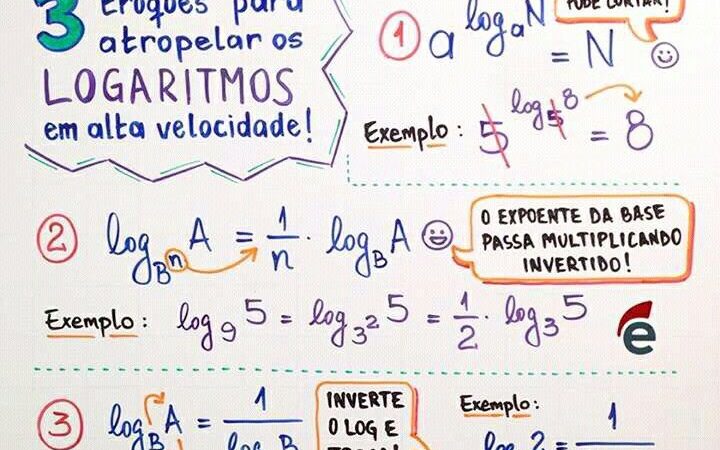 3 truques para
atropelar os
LOGARITMOS
em alta velocidade!
PODE CORTAR!
1 a^(log_a N) = N
Exemplo: 5^(log_5 8) = 8
2 log_(B^n) A = 1/n · log_B A
O EXPOENTE DA BASE
PASSA MULTIPLICANDO
INVERTIDO!
Exemplo: log_9 5 = log_(3^2) 5 = 1/2 · log_3 5
e
3 log_B A = 1/log B
INVERTE
O LOG E
Exemplo:
log 2 = 1